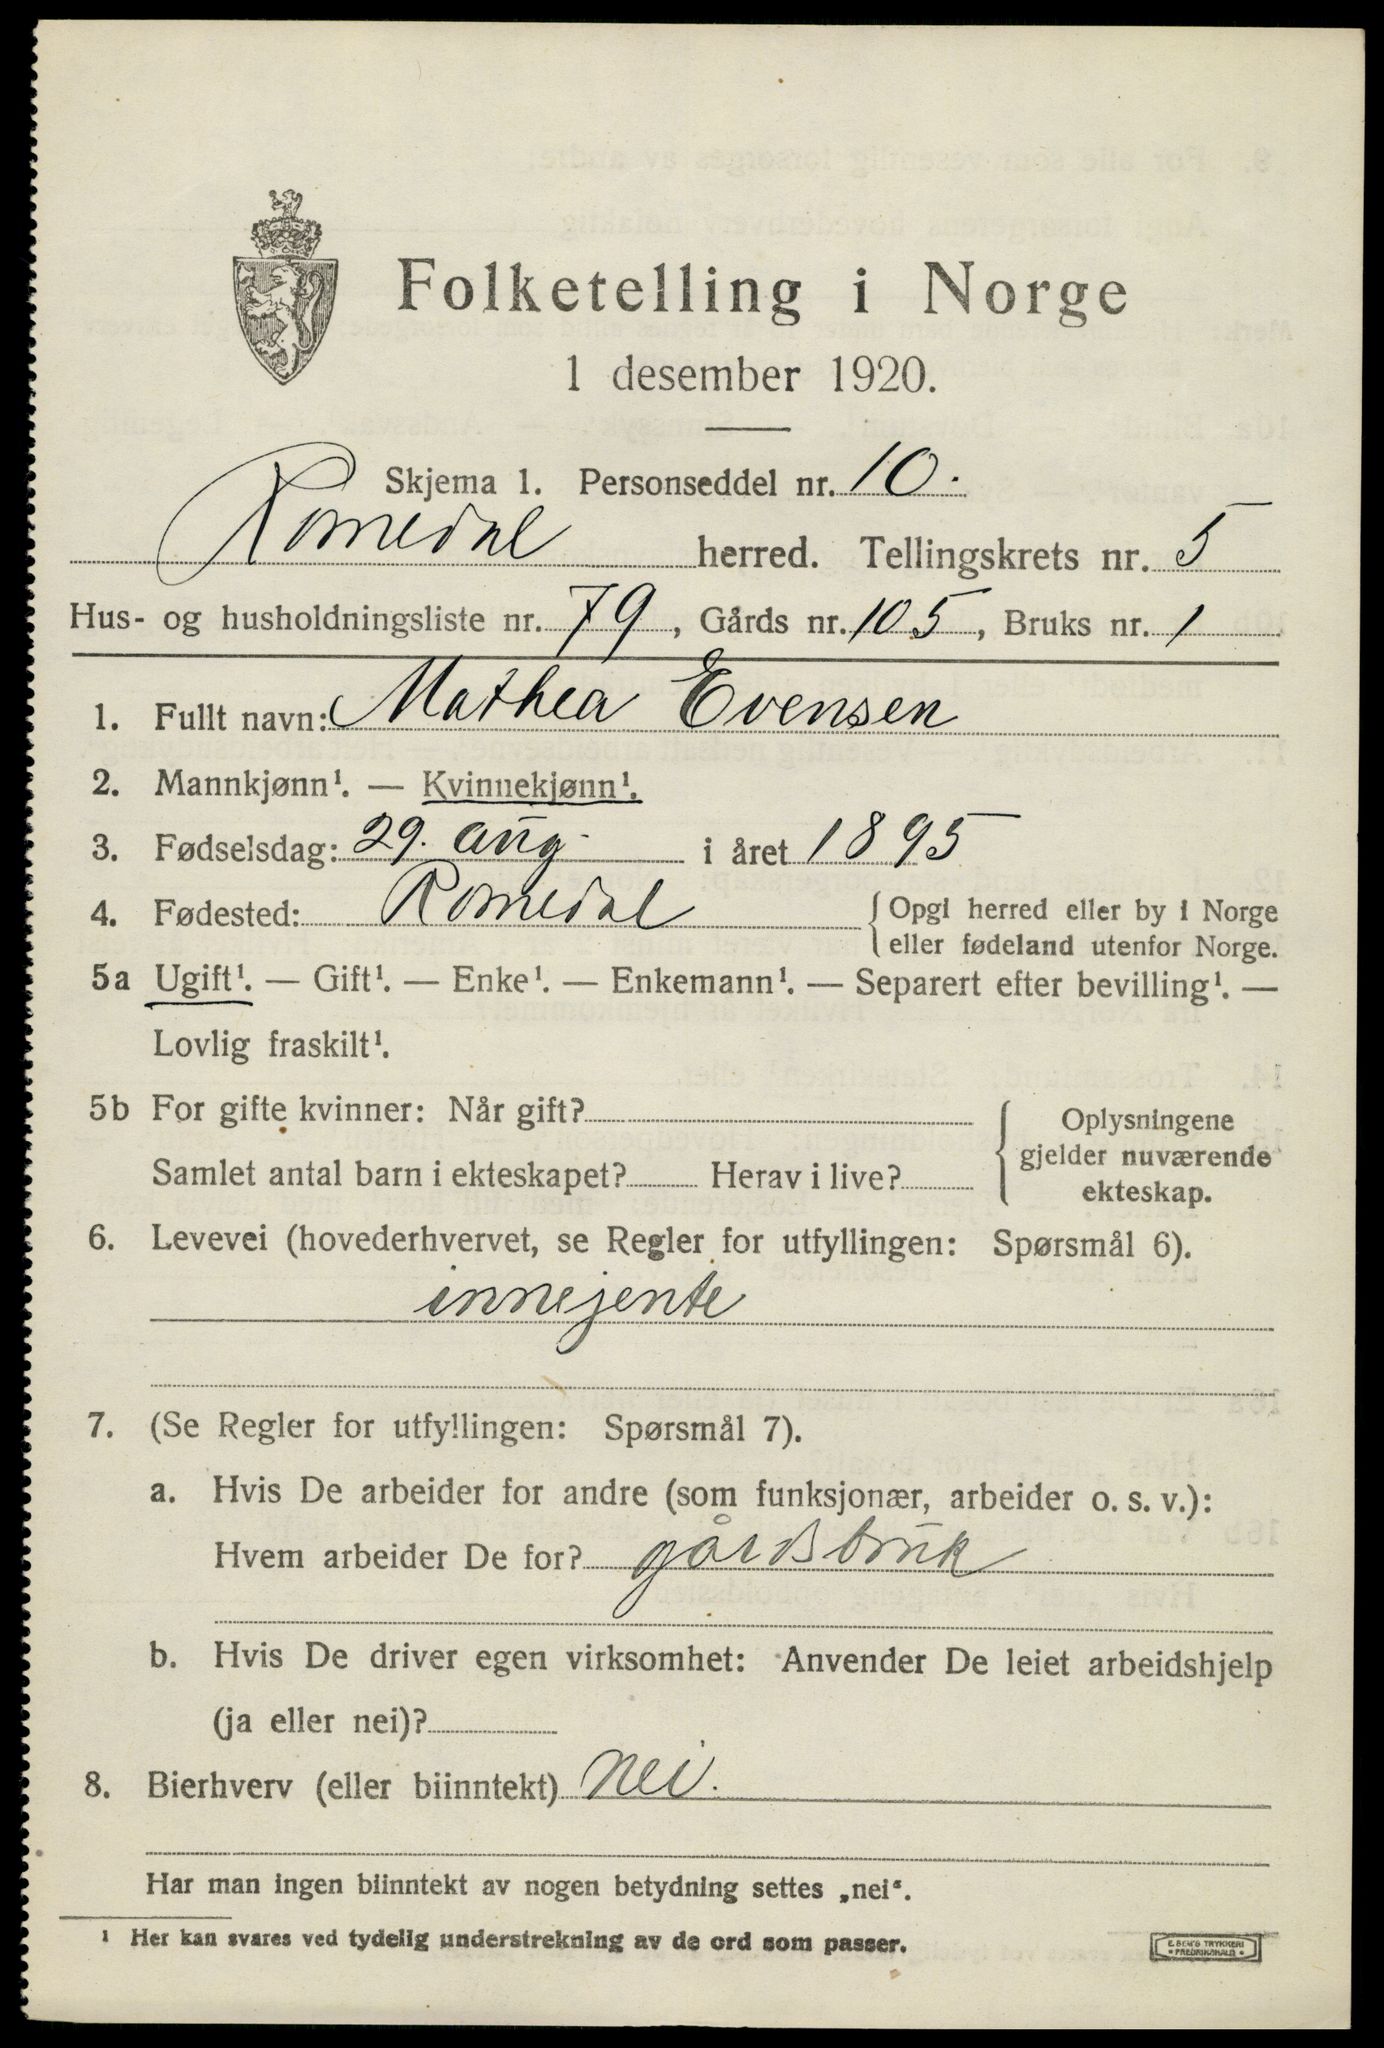 Folketelling i Norge
1 desember 1920.
Skjema 1. Personseddel nr. 10.
Romedal herred. Tellingskrets nr. 5
Hus- og husholdningsliste nr. 79, Gårds nr. 105, Bruks nr. 1
1. Fullt navn: Mathea Evensen
2. Mannkjønn¹. — Kvinnekjønn¹.
3. Fødselsdag: 29. aug. i året 1895
4. Fødested: Romedal {Opgi herred eller by i Norge
eller fødeland utenfor Norge.
5a Ugift¹. — Gift¹. — Enke¹. — Enkemann¹. — Separert efter bevilling¹. —
Lovlig fraskilt¹.
5b For gifte kvinner: Når gift? Oplysningene
gjelder nuværende
Samlet antal barn i ekteskapet? Herav i live? ekteskap.
6. Levevei (hovederhvervet, se Regler for utfyllingen: Spørsmål 6).
innejente
7. (Se Regler for utfyllingen: Spørsmål 7).
a. Hvis De arbeider for andre (som funksjonær, arbeider o. s. v.):
Hvem arbeider De for? gårdsbruk
b. Hvis De driver egen virksomhet: Anvender De leiet arbeidshjelp
(ja eller nei)?
8. Bierhverv (eller biinntekt) nei.
Har man ingen biinntekt av nogen betydning settes „nei“.
¹ Her kan svares ved tydelig understrekning av de ord som passer.
E. SEM'S TRYKKERI
• FREDRIKSHALD •